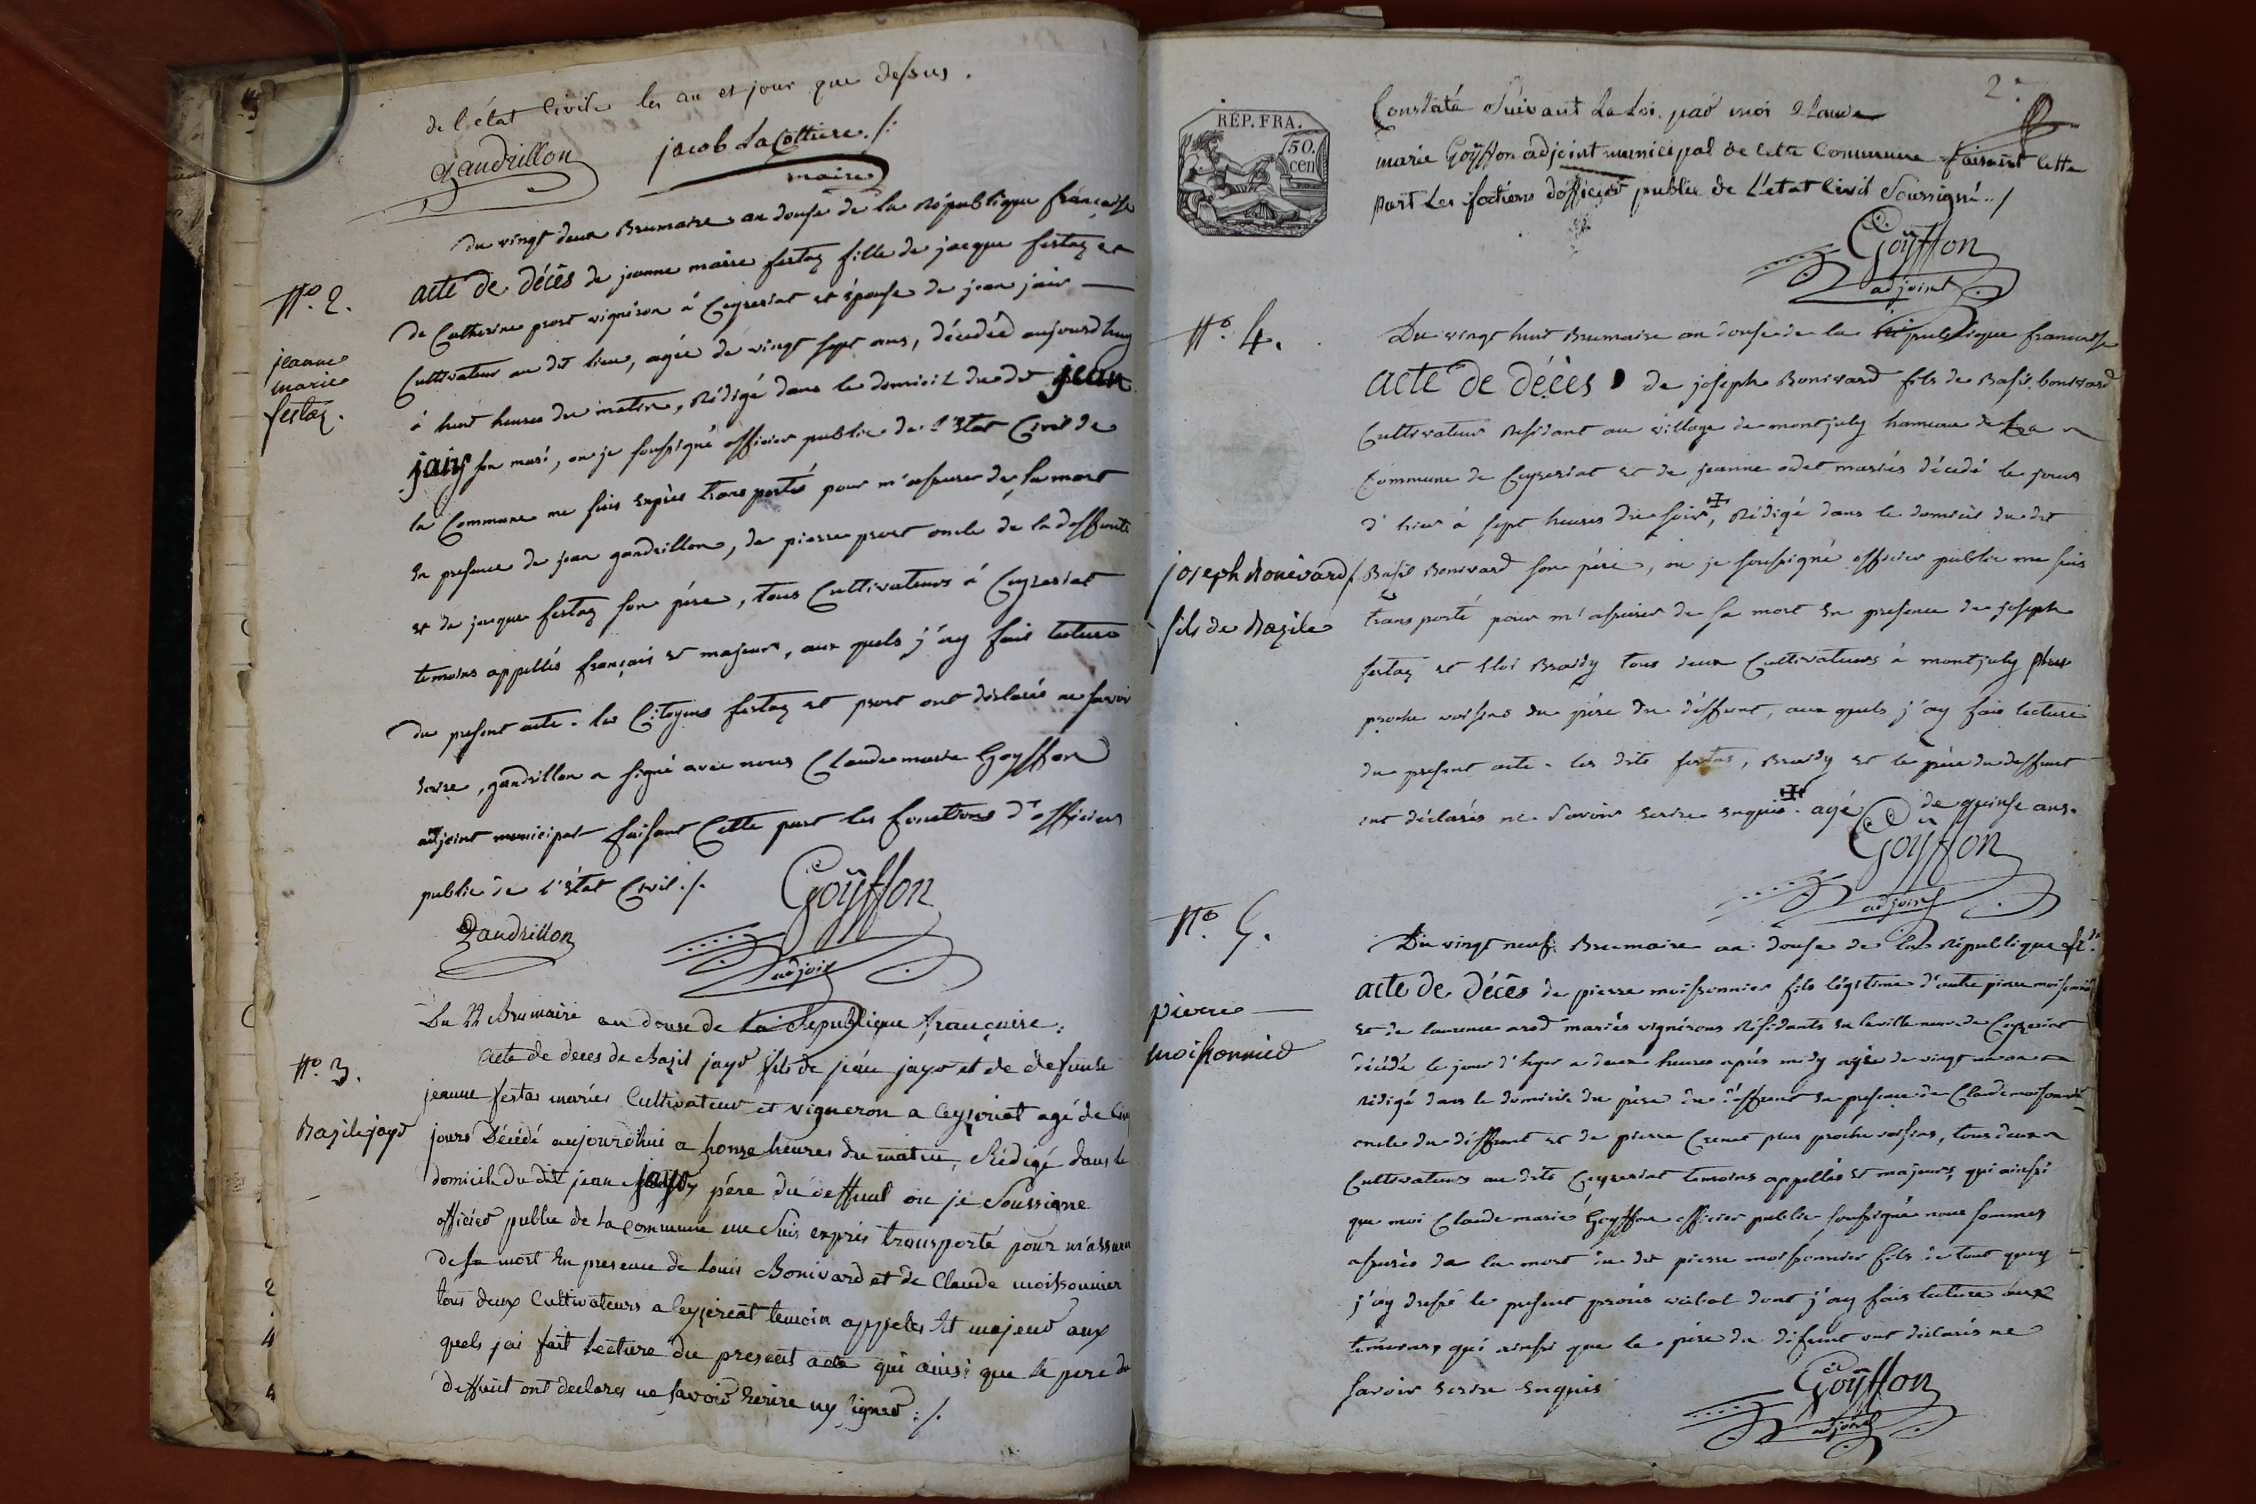 de l'état Civile les an et jour que dessus.
Gandrillon
jacob LaCottiere ./.
maire
du vingt deux Brumaire an douse de la République francaise
N.º 2.
jeanne
marie
festaz.
acte de décès de jeanne marie festaz fille de jacque festaz et
de Catherine prost vigneron à Ceyseriat et épouse de jean jair
Cultivateur au dit lieu, agée de vingt sept ans, décedée aujourd'huy
à huit heures du matin, Rédigé dans le domicil du dit jean
jair son mari, ou je soussigné officier public de l'Etat Civil de
la Commune me suis Exprès transporté pour m'assurer de sa mort
En presence de jean gandrillon, de pierre prost oncle de la deffunte
et de jacque festaz son père, tous Cultivateurs à Ceyseriat
temoins appellés français et majeurs, aux quels j'ay fait lecture
du present acte. les Citoyens festaz et prost ont déclarés ne savoir
Ecrire, gandrillon a signé avec nous Claude marie Goyffon
adjoint municipal faisant Cette part les fonctions d'officier
public de l'Etat Civil ./.
Gandrillon
Goÿffon
adjoint
Du 22 Brumaire an douse de la Republique françaisse.
N.º 3.
Bazile jayr
acte de deces de Bazil jayr fils de jean jayr et de defunte
jeanne festas mariés Cultivateur et vigneron a Ceyseriat agé de
jours Décédé aujourdhui a honze heures du matin, Rédigé dans le
domicile du dit jean jayr père du deffunt ou je Soussigne
officier public de la commune me Suis exprès transporté pour m'assurer
de sa mort En presence de Louis Bonivard et de Claude moissonnier
tous deux Cultivateurs a Ceyseriat temoin appeles Et majeur aux
quels jai fait Lecture du present acte qui ainsi que le pere du
deffunt ont declares ne savoir Ecrire ny signer ./.
2
4
4
2.
RÉP. FRA.
50.
cen
Constaté Suivant La Loi. par moi Claude
marie Goÿffon adjoint municipal de cette Commune faisant Cette
part Les foctions dofficier public de L'état Civil Soussigné ./
Goÿffon
adjoint
N.º 4.
Du vingt huit Brumaire an douse de la République francaise
acte de décès de joseph Bonivard fils de Basil bonivard
Cultivateur Residant au village de montjuly hameau de La
Commune de Ceyseriat et de jeanne odet mariés décédé le jour
d'hier à sept heures du soir, Rédigé dans le domicil du dit
joseph Bonivard
fils de Bazile
Basil Bonivard son père, ou je soussigné officier public me suis
transporté pour m'assurer de sa mort En presence de joseph
festaz et Eloi Braidy tous deux Cultivateurs à montjuly plus
proche voisins du père du déffunt, aux quels j'ay fait lecture
du present acte. les dits festas, Braidy et le père du deffunt
ont déclarés ne Savoir Ecrire Enquis. agé de quinse ans.
Goÿffon
adjoint
N.º 5.
Du vingt neuf Brumaire an douse de la République f.se
pierre
moissonnier
acte de décès de pierre moissonnier fils légitime d'autre pierre moissonnier
et de laurence arod mariés vignerons Résidants En la ville neuve de Ceyseriat
décédé le jour d'hyer a deux heures après midy agée de vingt un an
Rédigé dans le domicile du père du déffunt En presence de Claude moissonnier
oncle du déffunt et de pierre Cornet plus proche voisins, tous deux
Cultivateurs au dits Ceyseriat temoins appellés et majeurs, qui ainsi
que moi Claude marie Goyffon officier public soussigné nous sommes
assurés de la mort du dit pierre moissonnier fils de tout quoy
j'ay dressé le present procès verbal dont j'ay fait lecture aux
temoins, qui ainsi que le père du défunt ont déclarés ne
savoir Ecrire Enquis
Goÿffon
adjoint